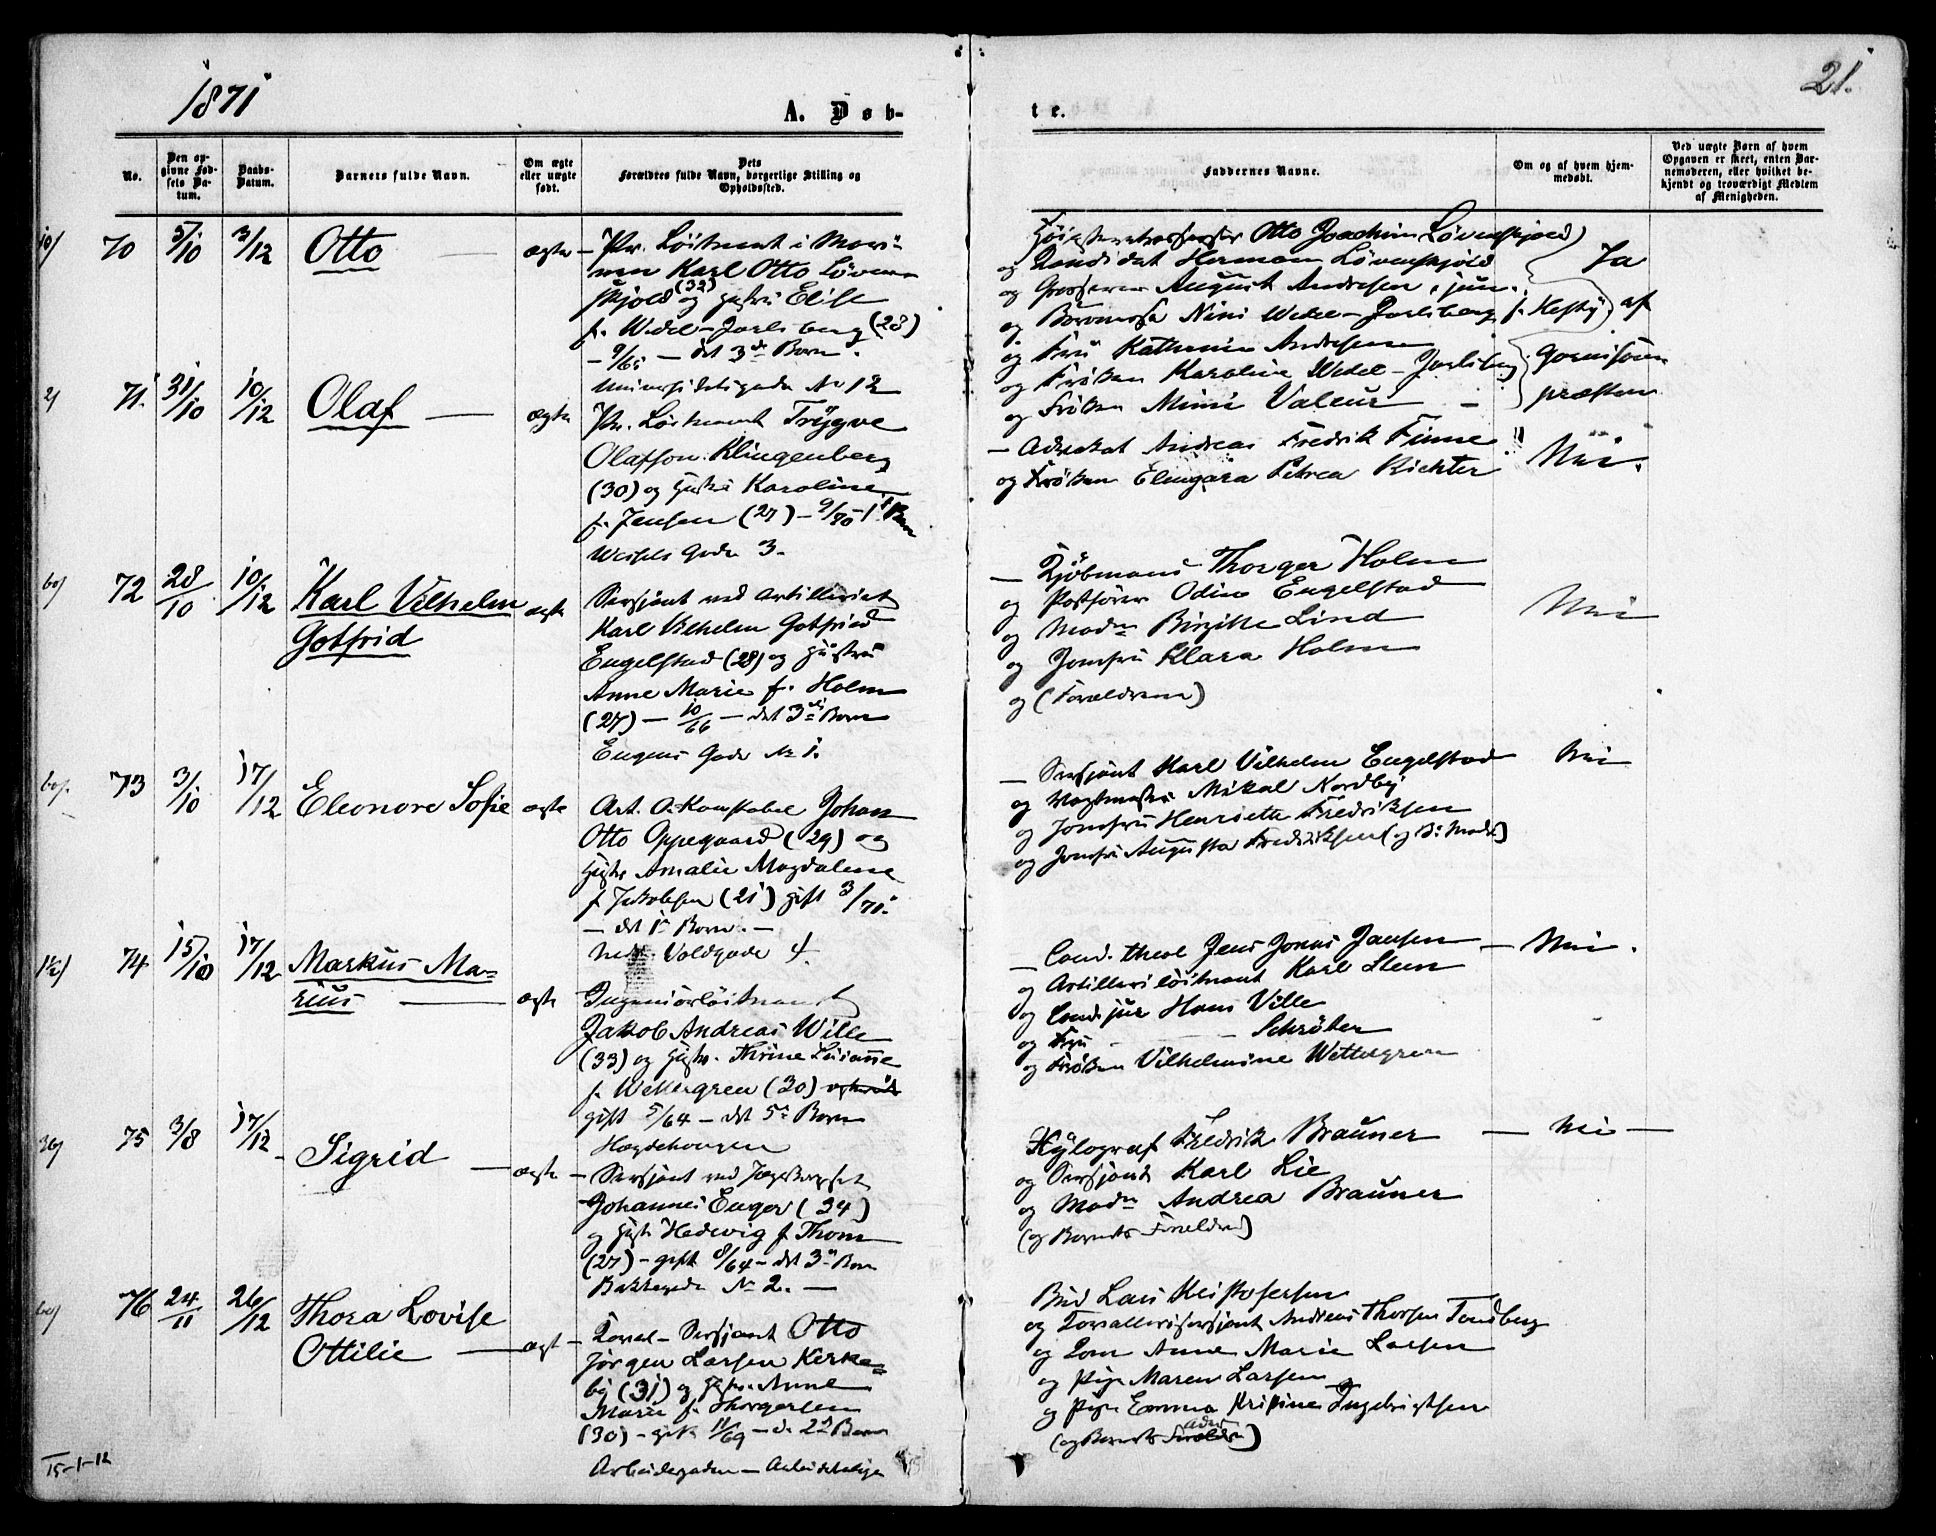 1871
A. Døb-
No.
Den op-
givne Fød-
sels Da-
tum.
Daabs-
Datum.
Barnets fulde Navn.
Om ægte
eller uægte
født.
Dets
Forældres fulde Navn, borgerlige Stilling og
Opholdssted.
70 5/10 3/12 Otto — ægte
Pr. Løitnant i Mari-
nen Karl Otto Løven-
skjold (32) og Hustru Elise
f. Wedel-Jarlsberg (28)
— det 3die Barn.
Universitetsgade No 12
71. 31/10 10/12 Olaf — ægte
Pr. Løitnant Trygve
Olafson Klingenberg
(30) og Hustru Karoline
f. Jensen (27) — 9/70 — 1ste Barn
Wessels Gade 3.
72 28/10 10/12 Karl Vilhelm ægte
Gotfrid
Sersjant ved Artilleriet
Karl Vilhelm Gotfried
Engelstad (28) og Hustru
Anne Marie f. Holm
(27) — 10/66 — det 3die Barn
Eugens Gade No 1.
73 3/10 17/12 Eleonore Sofie ægte
Art. O.Konstabel Johan
Otto Oppegaard (29) og
Hustr. Amalie Magdalene
f. Jakobsen (21) gift 3/71.
— det 1ste Barn. —
Nedr. Voldgade 4.
74 15/10 17/12 Markus Ma-
rius — ægte
Ingeniørløitnant
Jakob Andreas Wille
(33) og Hustr. Thrine Lovise
f. Wettergren (30)
gift 5/64 — det 5te Barn
Hægdehougen
75 3/8 17/12 Sigrid — ægte
Sersjant ved Jægerkorpset
Johannes Enger (34)
og Hustr. Hedvig f. Thom
(27) — gift 8/64 — det 3die Barn
Bakkegade No 2. —
76 24/11 26/12 Thora Lovise
Ottilie — ægte
Kaval-Sersjant Otto
Jørgen Larsen Kirke-
by (31) og Hustr. Anne
Marie f. Thorgersen
(30) — gift 11/69 — d. 2det Barn
Arbeidergaden —
15-1-12
21.
te.
Faddernes Navne.
Om og af hvem hjem-
medøbt.
Ved uægte Børn af hvem
Opgaven er skeet, enten Bar-
nemoderen, eller hvilket be-
kjendt og troværdigt Medlem
af Menigheden.
Høiesteretsassessor Otto Joachim Løvenskjold
og Kandidat Herman Løvenskjold
og Grosserer August Andresen, jun.
og Baronesse Nini Wedel-Jarlsberg
og Fru Kathrine Andresen
og Frøken Karoline Wedel-Jarlsberg
og Frøken Mimi Valeur —
Ja
af
Garnisons
præsten
— Advokat Andreas Fredrik Finne
og Frøken Elingara Petrea Richter
Nei.
— Kjøbmand Thorger Holm
og Postfører Odin Engelstad
og Madm Birgitte Lind
og Jomfru Klara Holm
og (Forældrene)
Nei
— Sersjant Karl Vilhelm Engelstad
og Vagtmester Mikal Nordby
og Jomfru Henriette Fredriksen
og Jomfru Augusta Fredriksen (og B: Moder)
Nei
— Cand. theol Jens Jonas Jansen — Nei.
og Artilleriløitnant Karl Steen
og Cand. jur Hans Ville
og Fru — Schrøder
og Frøken Vilhelmine Wettergren
Xylograf Fredrik Brauner — Nei —
og Sersjant Karl Lie
og Madm Andrea Brauner
(og Barnets Forældre)
Bud Lars Kristofersen
og Kavallerisersjant Andreas Thorsen Tandberg
og Enm Anne Marie Larsen
og Pige Maren Larsen
og Pige Emma Kristine Ingebrigtsen
(og Barnets Forældre)